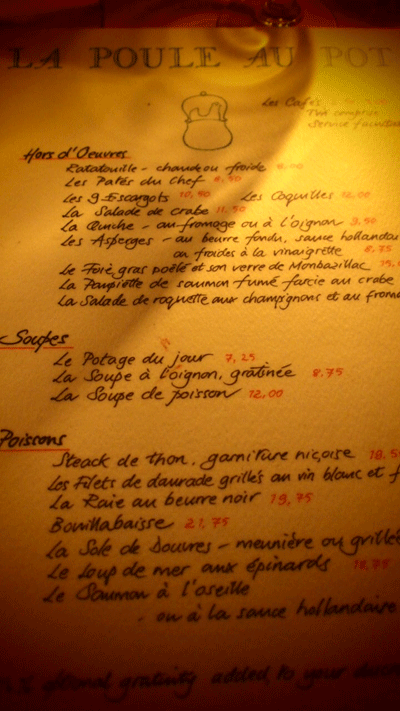 LA POULE AU POT
Les Cafés
Tva comprise
Service
Hors d'Oeuvres
Ratatouille - chaude ou froide 8.00
Les Patés du Chef 8.50
Les 9 Escargots 10,50 Les Coquilles 12.00
La Salade de crabe 11.50
La Quiche - au fromage ou à l'oignon 9,50
Les Asperges - au beurre fondu, sauce hollandai
ou froides à la vinaigrette 8.75
Le Foie gras poêlé et son verre de Monbazillac 15,
La Paupiette de saumon fumé farcie au crabe
La Salade de roquette aux champignons et au froma
Soupes
Le Potage du jour 7,25
La Soupe à l'oignon, gratinée 8.75
La Soupe de poisson 12.00
Poissons
Steack de thon, garniture niçoise 18.5
Les Filets de daurade grillés au vin blanc et f
La Raie au beurre noir 19,75
Bouillabaisse 21,75
La Sole de Douvres - meunière ou grillée
Le Loup de mer aux épinards 18,75
Le Saumon à l'oseille
- ou à la sauce hollandaise
optional gratuity added to your